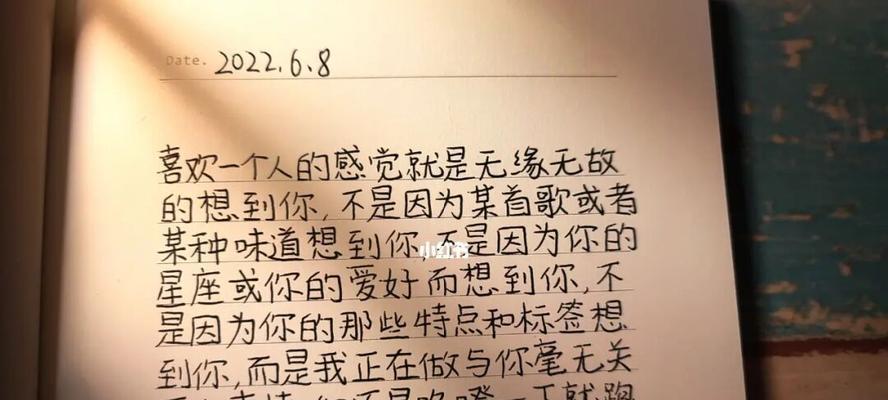 Date. 2022.6.8
喜欢一个人的感觉就是无缘无故
的想到你,不是因为某首歌或者
某种味道想到你,不是因为你的
小红书
星座或你的爱好而想到你,不
是因为你的那些特点和标签想
到你,而是我正在做与你毫无关